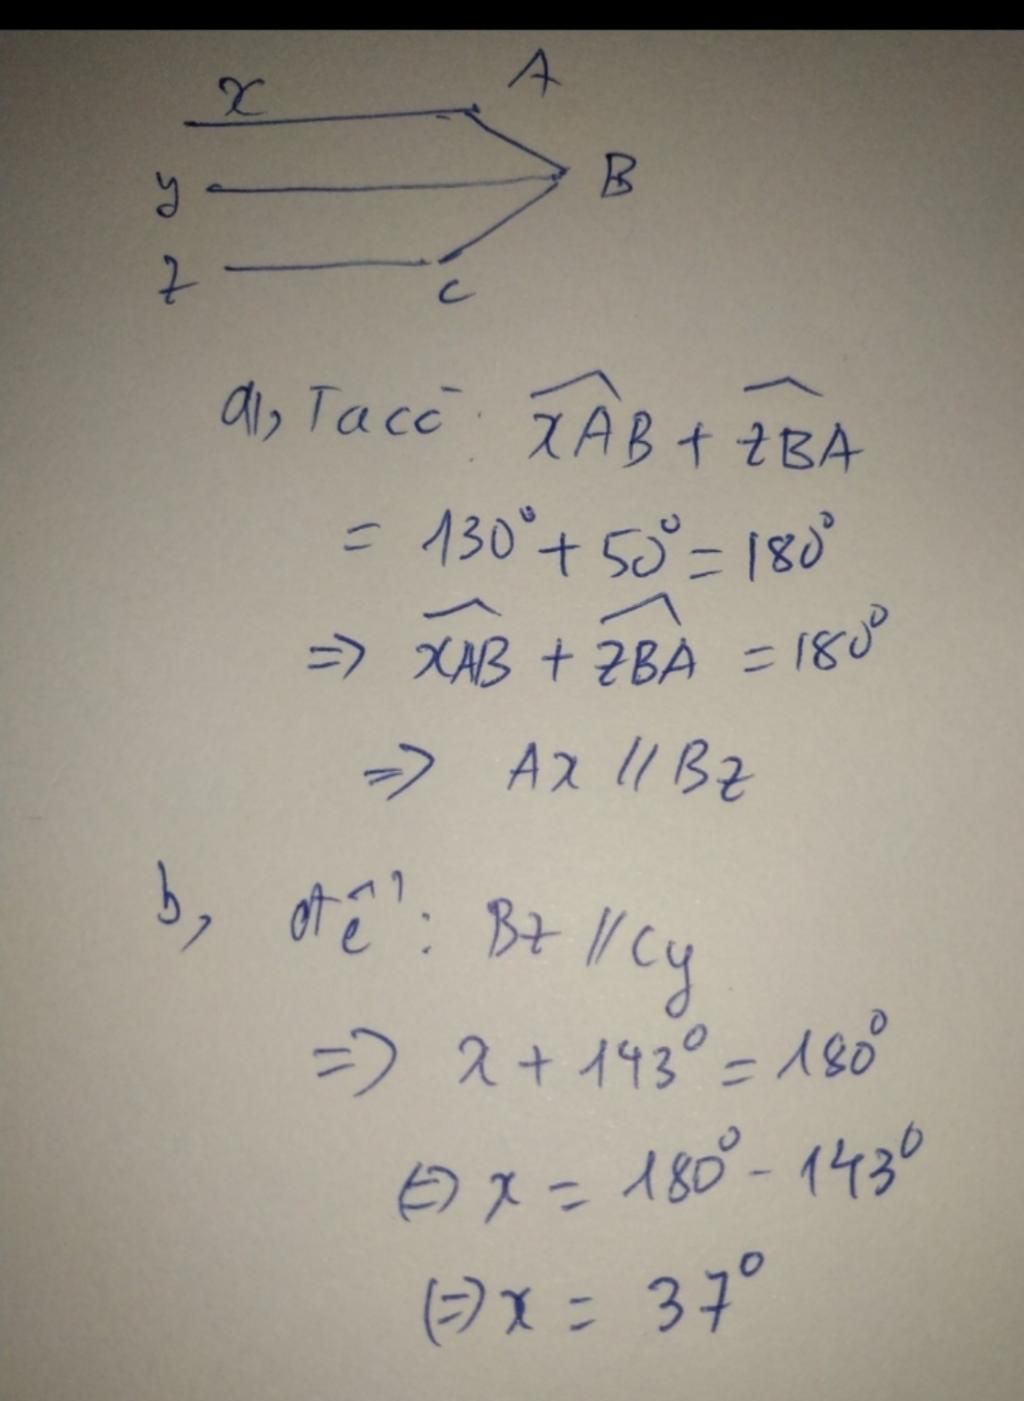 x
A
y
B
z
C
a, Ta có: xAB + zBA
= 130° + 50° = 180°
=> xAB + zBA = 180°
=> Ax // Bz
b, để: Bz // Cy
=> x + 143° = 180°
(=) x = 180° - 143°
(=) x = 37°